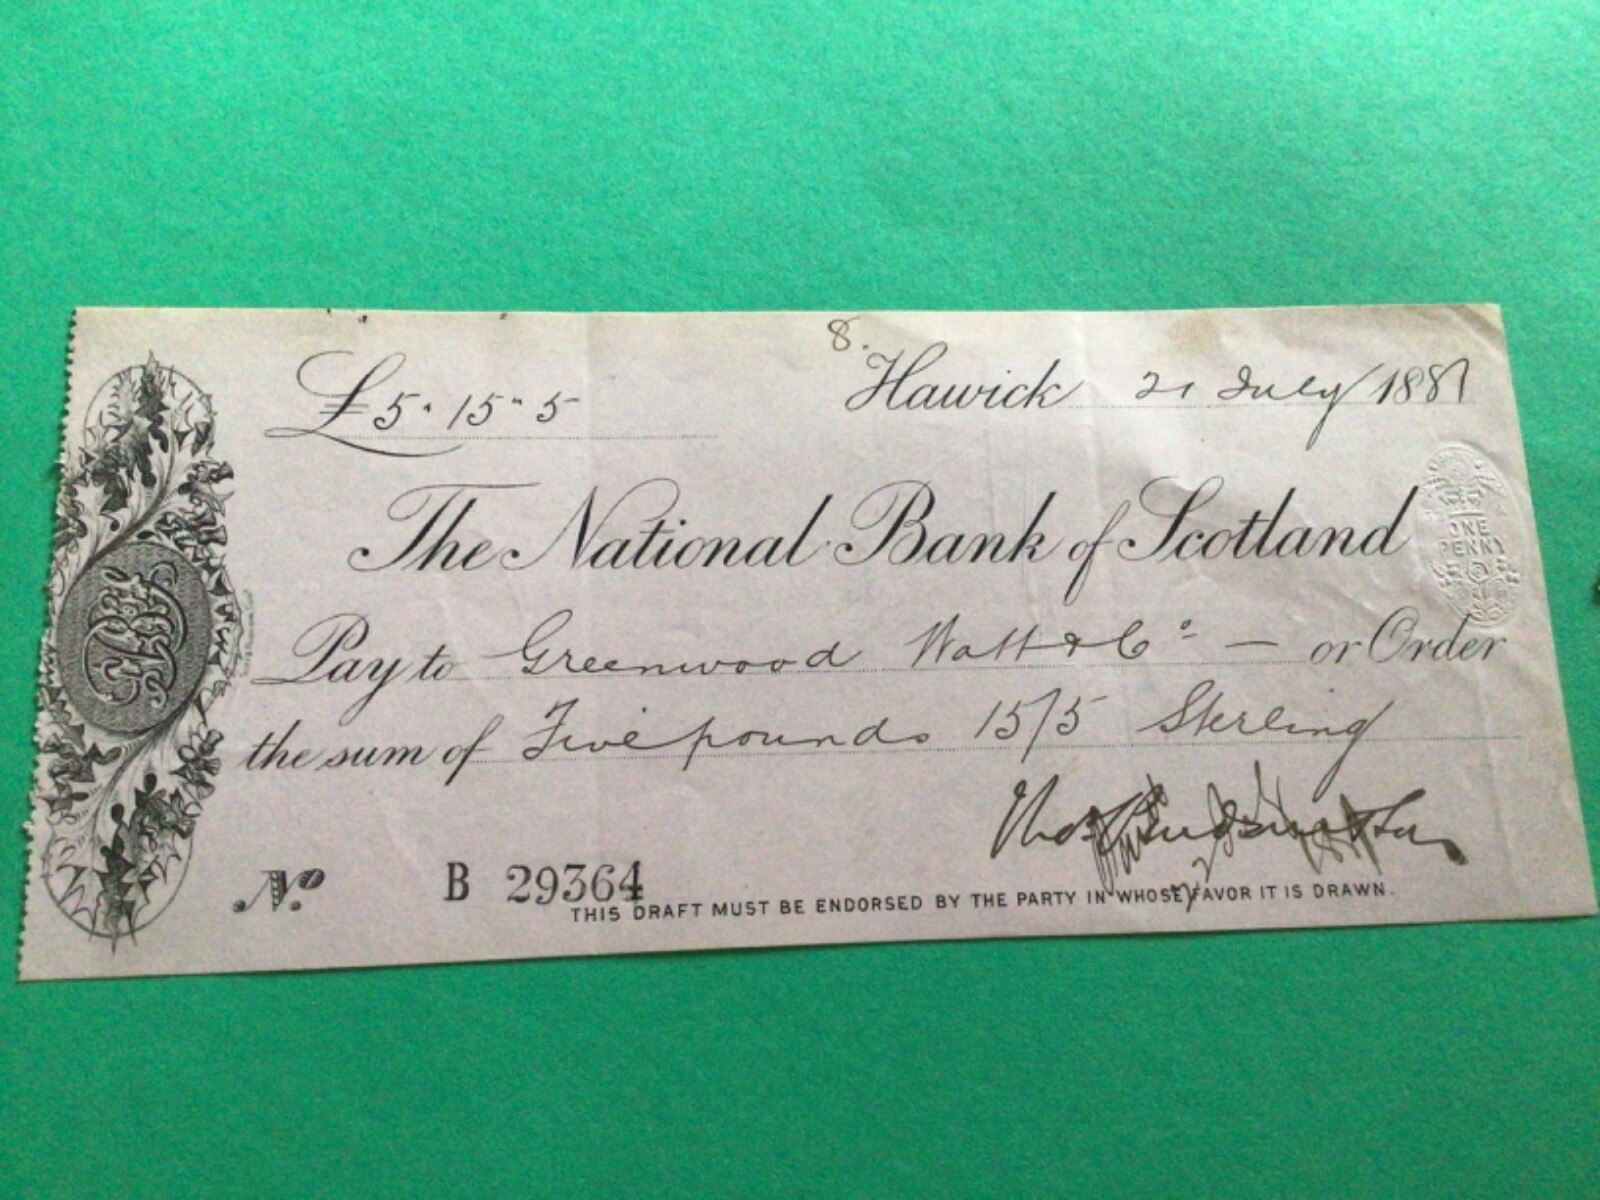 8.
£5 " 15 " 5
Hawick 21 July 1881
The National Bank of Scotland
ONE
PENNY
Pay to Greenwood Watt & Co — or Order
the sum of Five pounds 15/5 Sterling
Thos
No. B 29364
THIS DRAFT MUST BE ENDORSED BY THE PARTY IN WHOSE FAVOR IT IS DRAWN.